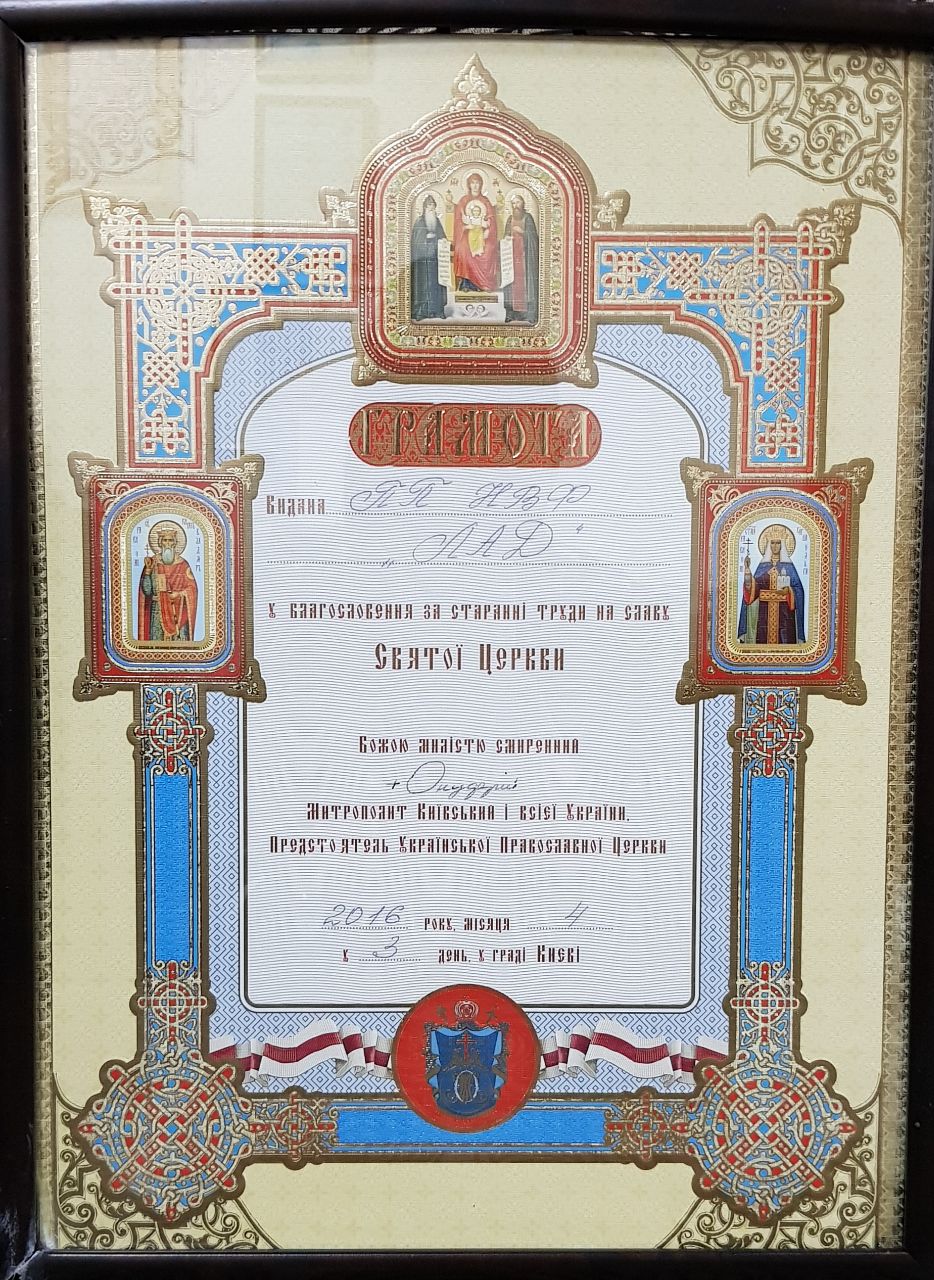 ГРАМОТА
Видана ПП НВФ
„ЛАД"
У благословення за старанні труди на славу
Святої Церкви
Божою милістю смиренний
+ Онуфрій
Митрополит Київський і всієї України,
Предстоятель Української Православної Церкви
2016 року, місяця 4
у 3 день, у граді Києві